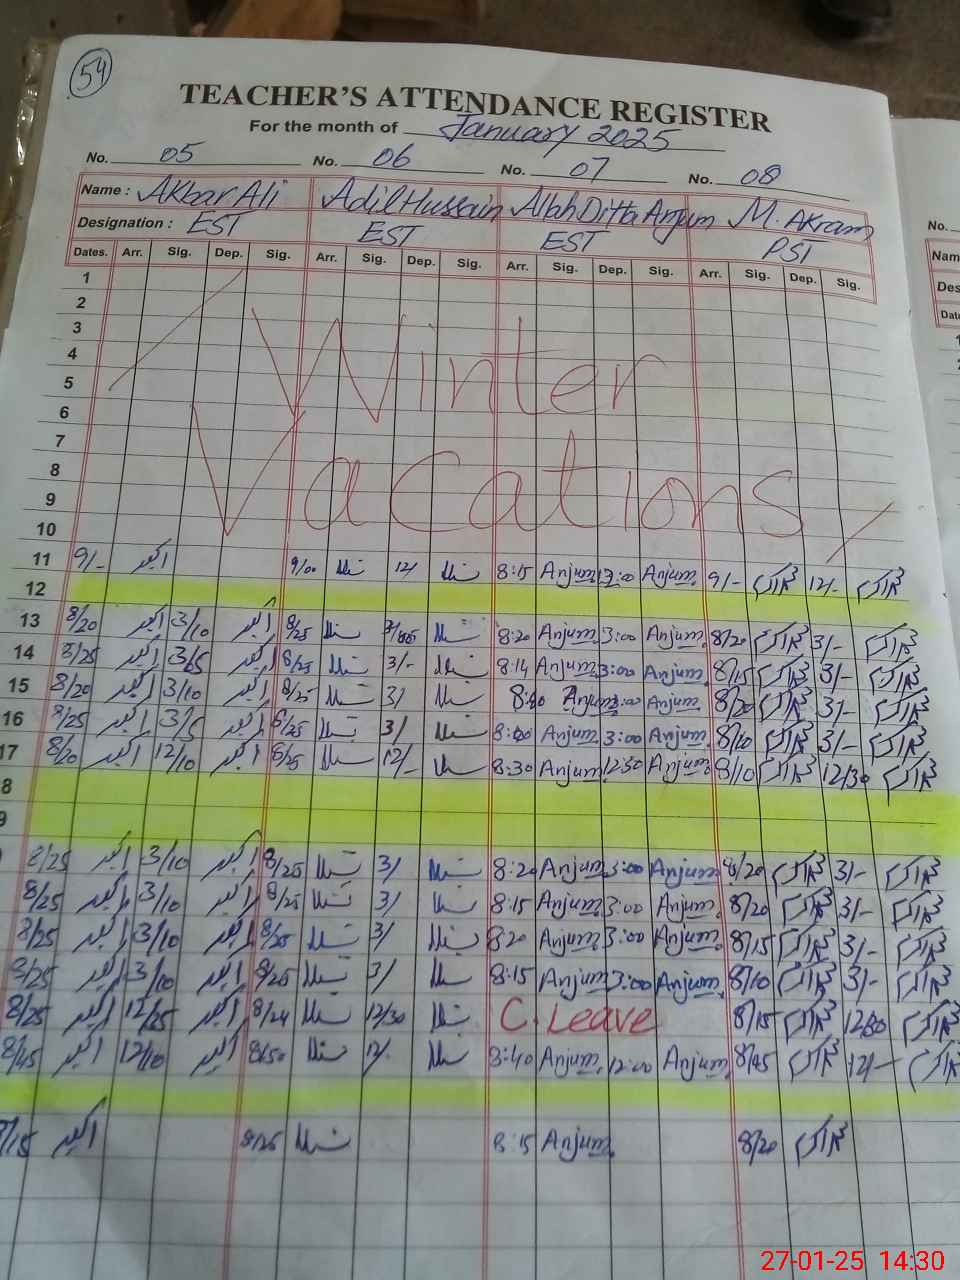 54
TEACHER'S ATTENDANCE REGISTER
For the month of January 2025
No. 05 No. 06 No. 07 No. 08
No.
Name : Akbar Ali Adil Hussain Allah Ditta Anjum M. Akram
Nam
Designation : EST EST EST PST
Des
Dates. Arr. Sig. Dep. Sig. Arr. Sig. Dep. Sig. Arr. Sig. Dep. Sig. Arr. Sig. Dep. Sig.
Dat
1
2
3
4
5
6
7
8
9
10
Winter
Vacations
11 9/- اکبر 9/00 12/ 8:15 Anjum 12:00 Anjum 9/- 12/-
12
13 8/20 اکبر 3/10 اکبر 8/25 8:20 Anjum 3:00 Anjum 8/20 3/-
14 8/25 اکبر اکبر 8/25 3/- 8:14 Anjum 3:00 Anjum 8/15 3/-
15 8/20 اکبر 3/10 اکبر 8/25 3/ Anjum 3:00 Anjum 8/20 3/-
16 8/25 اکبر 3/5 اکبر 8/25 3/ Anjum 3:00 Anjum 8/10 3/-
17 8/20 اکبر 12/10 اکبر 8/25 12/- 8:30 Anjum 12:30 Anjum 8/10 12/30
8
9
8/25 اکبر 3/10 اکبر 8/25 3/ 8:20 Anjum 3:00 Anjum 8/20 3/-
8/25 اکبر 3/10 اکبر 8/25 3/ 8:15 Anjum 3:00 Anjum 8/20 3/-
8/25 اکبر 3/10 اکبر 8/25 3/ 8:20 Anjum 3:00 Anjum 8/15 3/-
8/25 اکبر 3/10 اکبر 8/25 3/ 8:15 Anjum 3:00 Anjum 8/10 3/-
8/25 اکبر 12/25 اکبر 8/24 12/30 C. Leave 8/15 12/30
8/45 اکبر 12/10 اکبر 8/50 12/. 8:40 Anjum 12:00 Anjum 8/45 12/-
/15 اکبر 8/25 8:15 Anjum 8/20
27-01-25 14:30